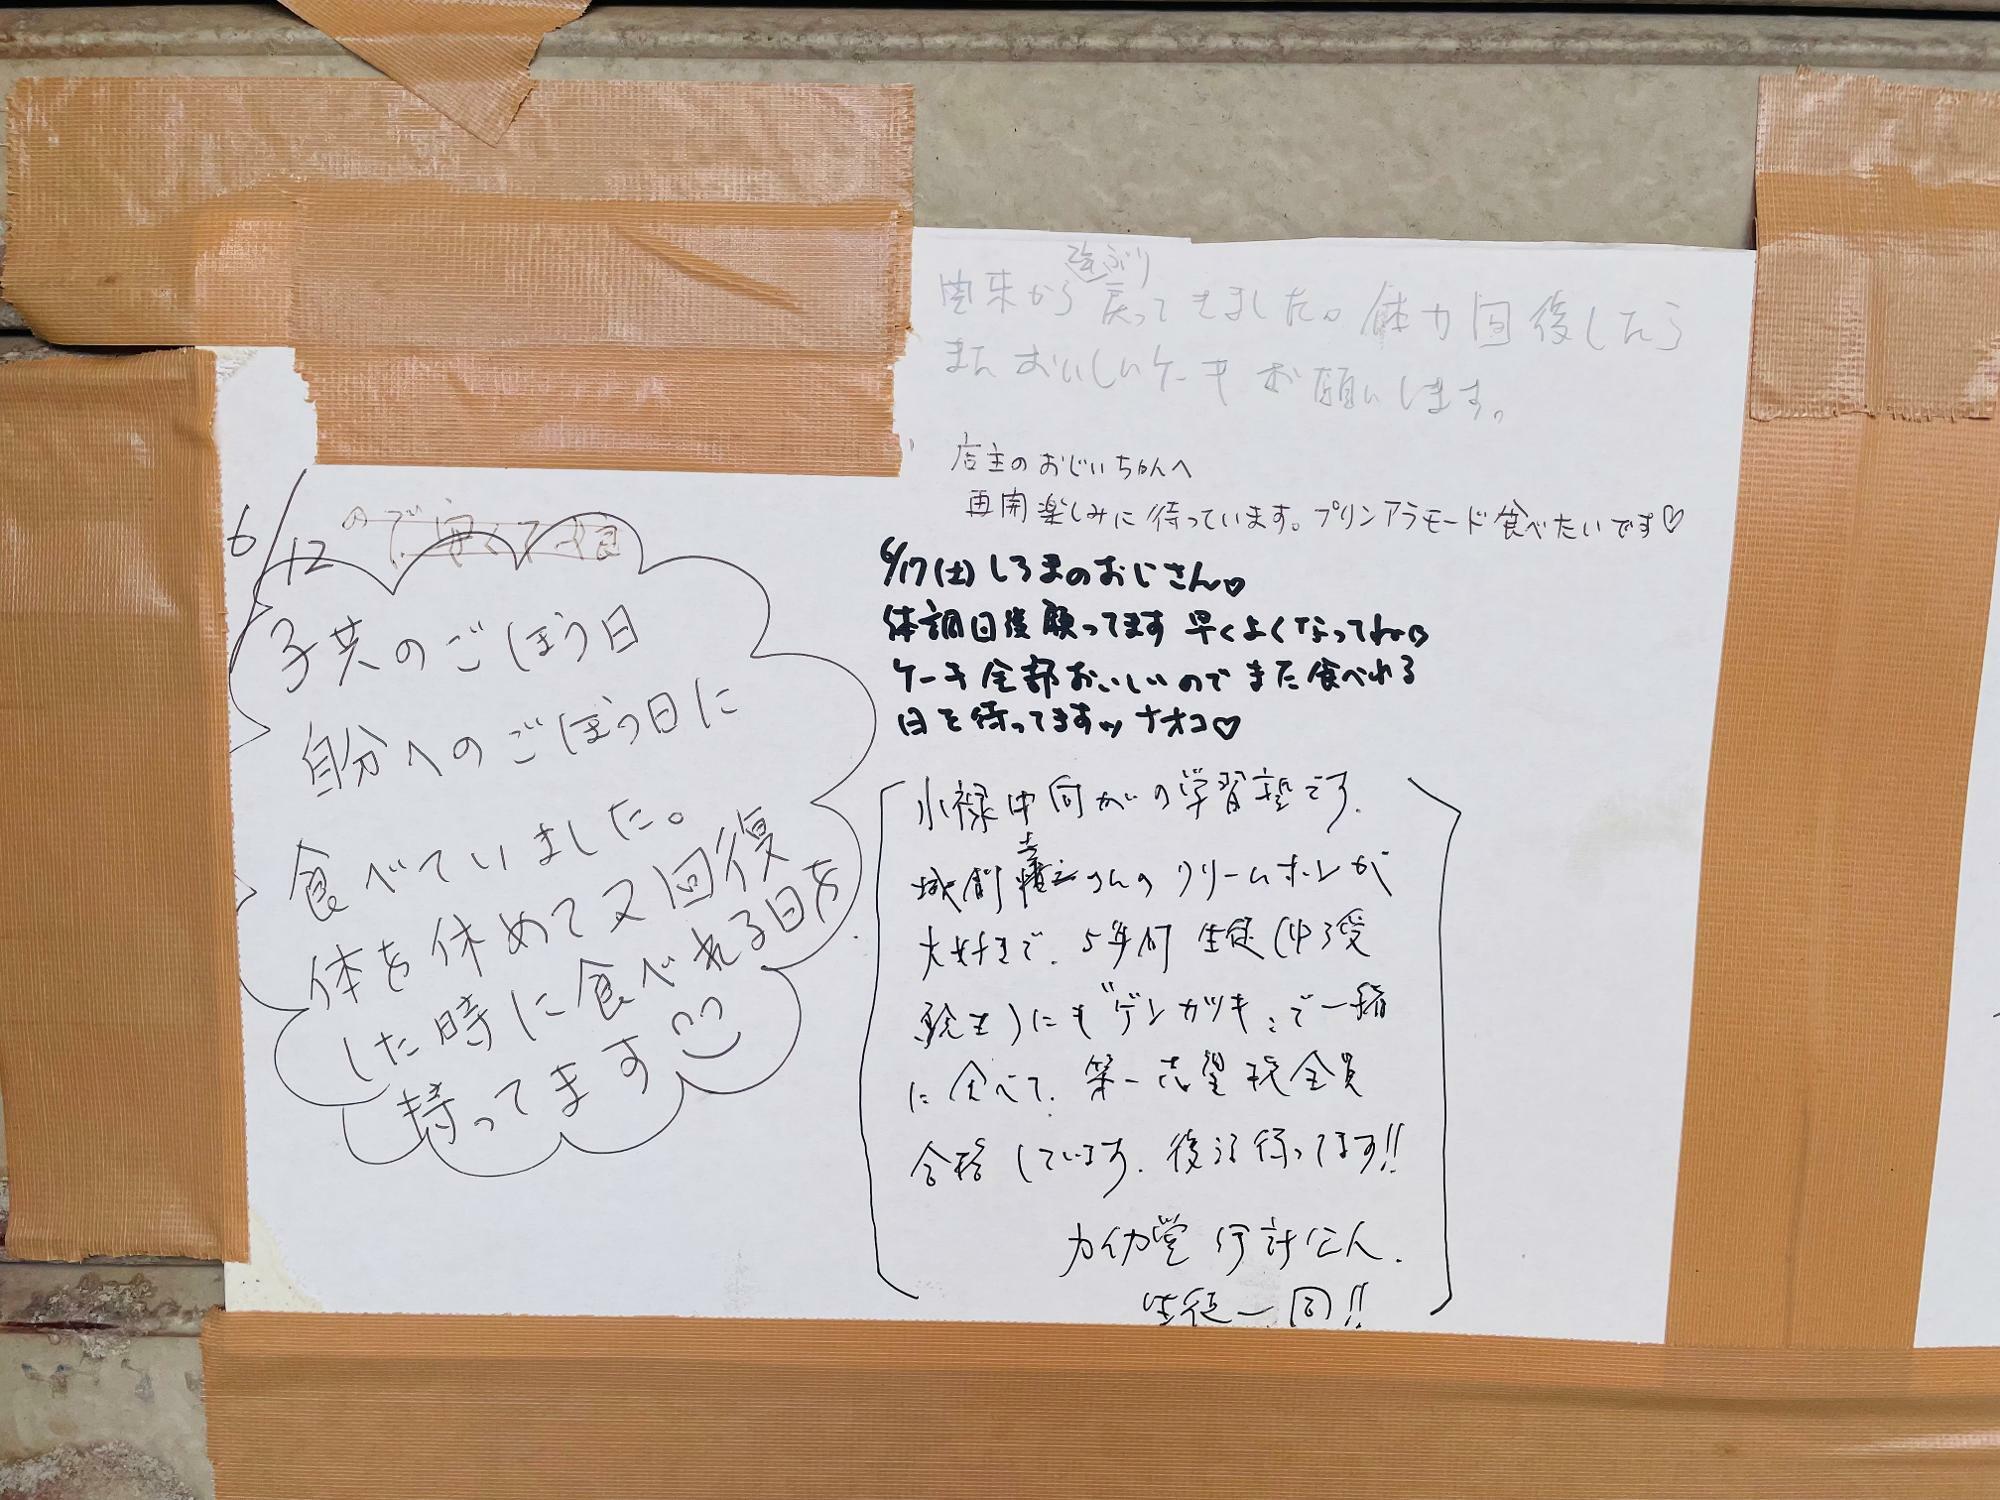 関東から久ぶり戻ってきました。体力回復したら
またおいしいケーキお願いします。
店主のおじいちゃんへ
再開楽しみに待っています。プリンアラモード食べたいです♡
6/17(土)しろまのおじさん♡
体調回復願ってます 早くよくなってね
ケーキ全部おいしいのでまた食べれる
日を待ってます ナオコ♡
6/12
ので
子供のごほう日
自分へのごほう日に
食べていました。
体を休めて又回復
した時に食べれる日を
待ってます
小禄中向かいの学習塾です.
さんのクリームホレが
大好きで、5年前 生徒(中3受
験生)にも"ゲンカツギ"で一緒
に食べて、第一志望校全員
合格しています. 復活待ってます!!
生徒一同!!